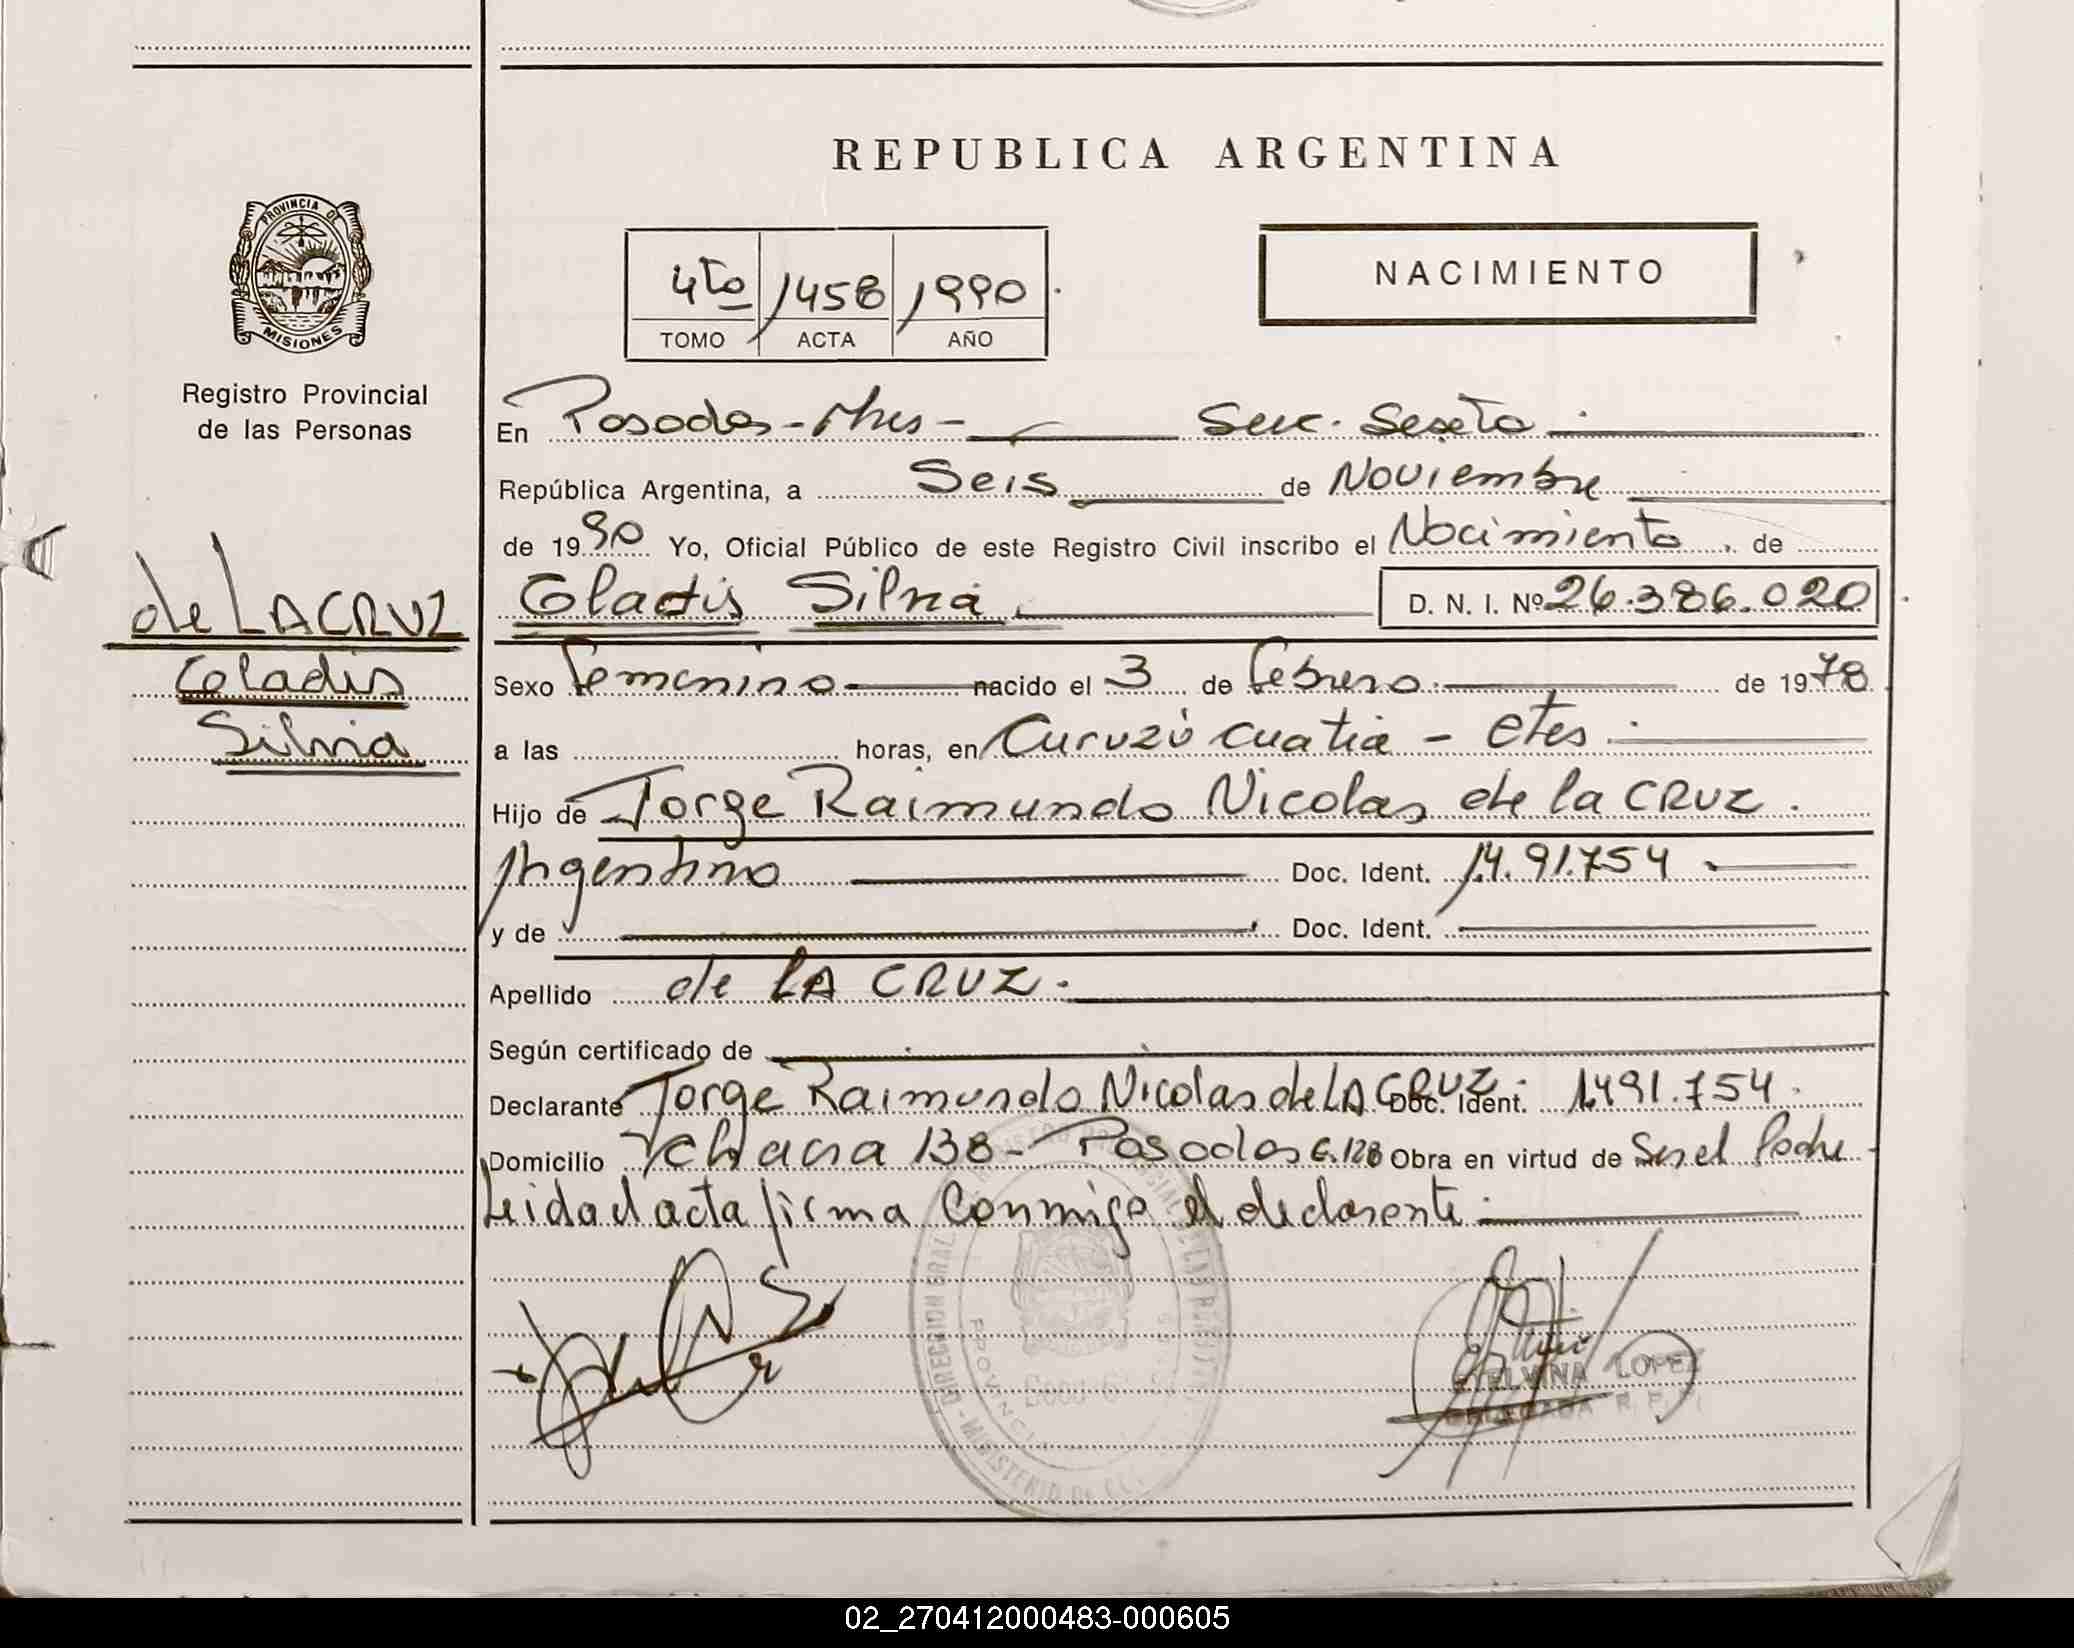 REPUBLICA ARGENTINA
PROVINCIA DE
MISIONES
Registro Provincial
de las Personas
4to 1458 1990
TOMO ACTA AÑO
NACIMIENTO
En Posadas - Mnes - Secc. Sexta
República Argentina, a Seis de Noviembre
de 1990 Yo, Oficial Público de este Registro Civil inscribo el Nacimiento de
Gladis Silvia. D. N. I. Nº 26.386.020
de LA CRUZ
Gladis
Silvia
Sexo Femenino nacido el 3 de Febrero de 1978
a las horas, en Curuzú Cuatia - Ctes
Hijo de Jorge Raimundo Nicolas de la CRUZ.
Argentino Doc. Ident. 14.91.754
y de Doc. Ident.
Apellido de LA CRUZ.
Según certificado de
Declarante Jorge Raimundo Nicolas de LA CRUZ Doc. Ident. 1491.754.
Domicilio Chacra 138 - Posadas C. 128 Obra en virtud de Ser el Padre
Leida el acta firma conmigo el declarante
DIRECCION GRAL
PROVINCIA
MINISTERIO DE
ETELVINA LOPEZ
DELEGADA R. P.
02_270412000483-000605